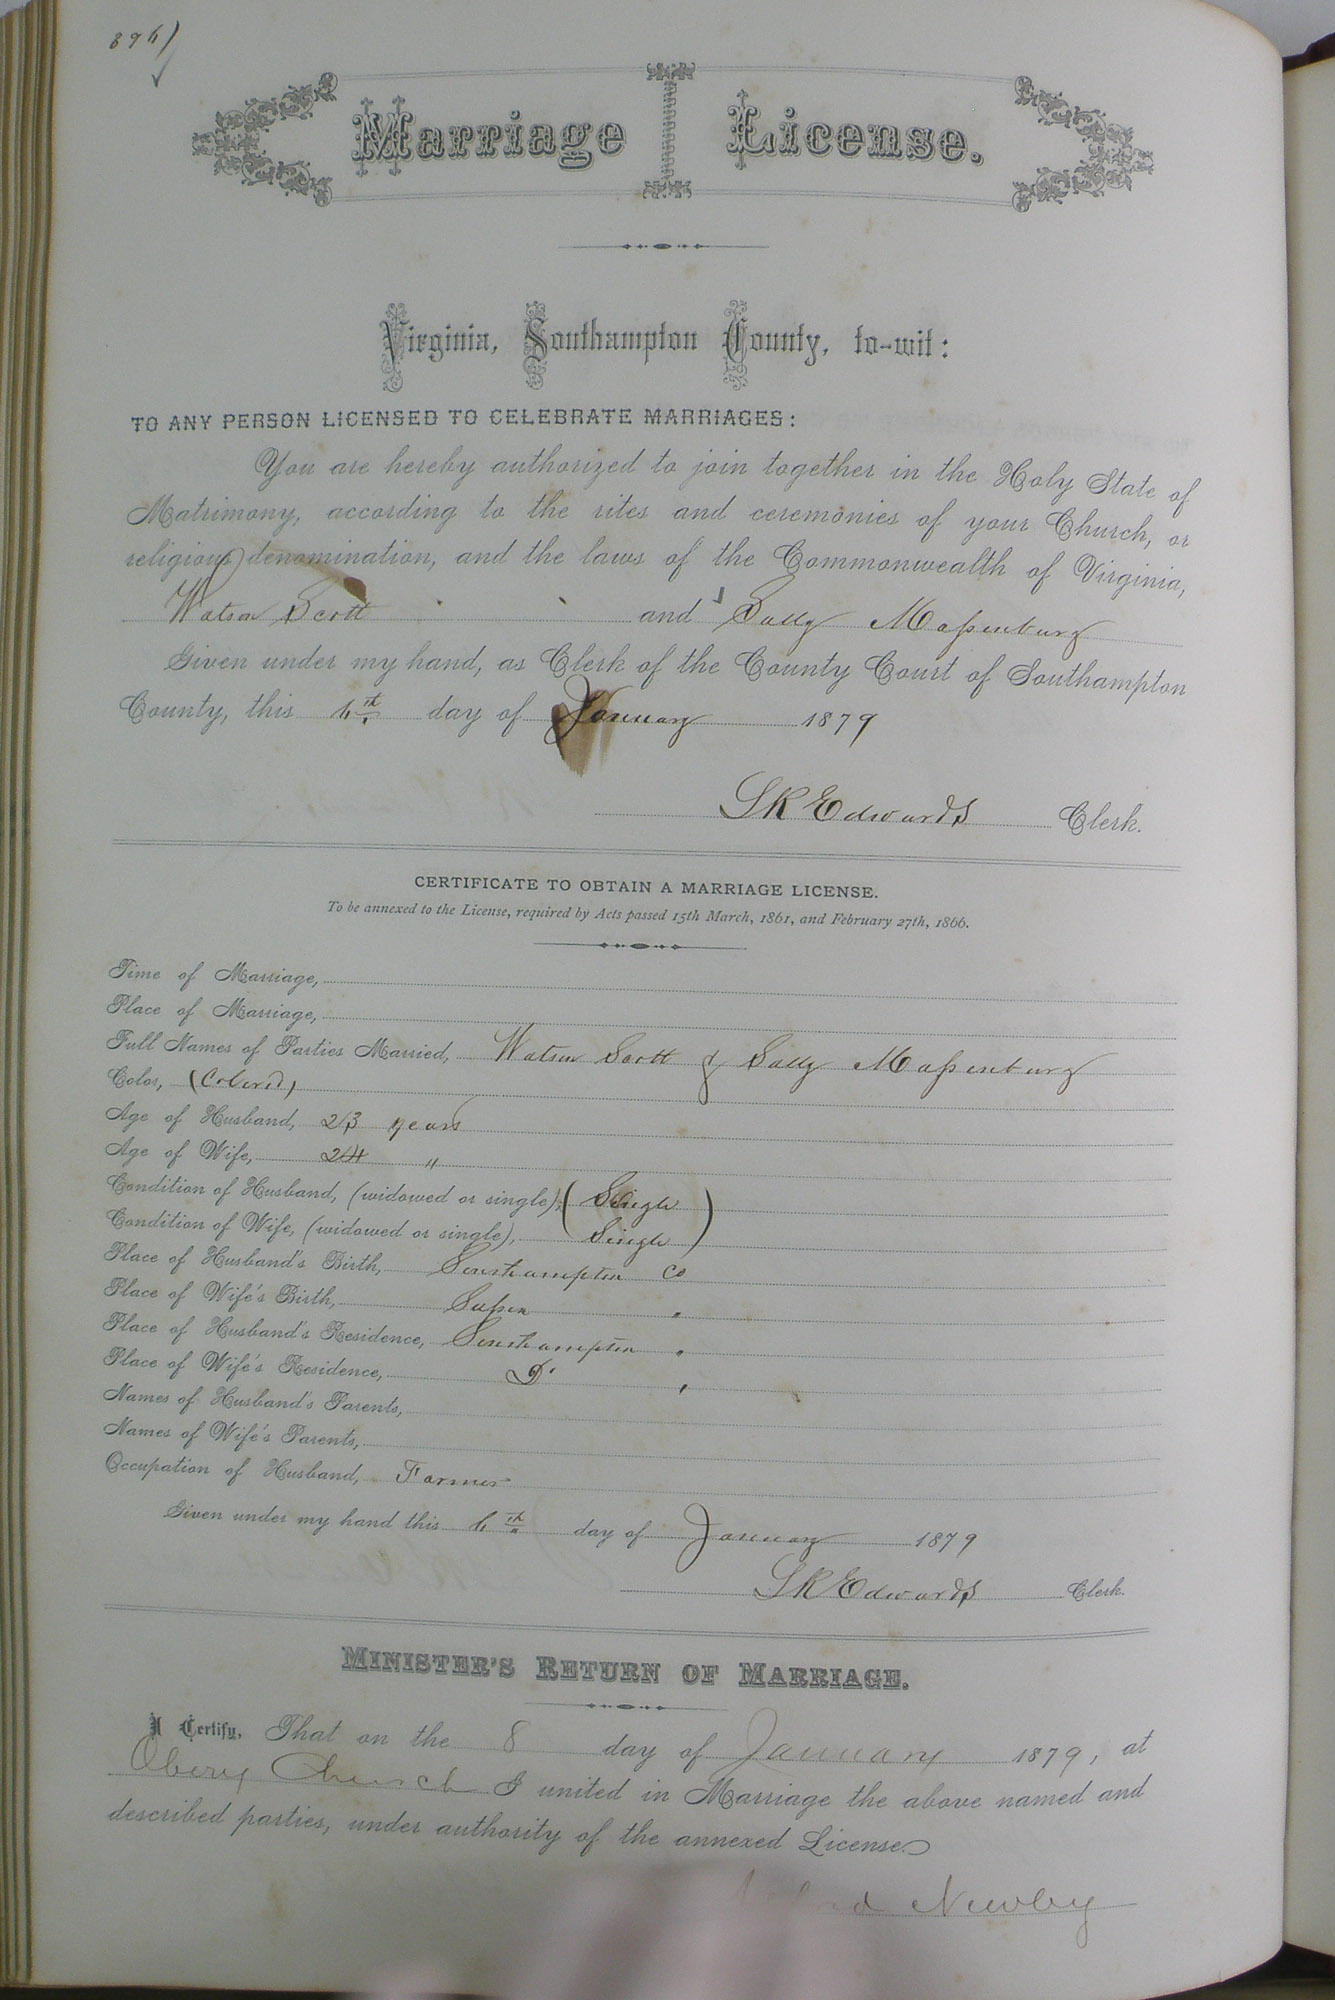 896)
Marriage License.
Virginia, Southampton County, to-wit:
TO ANY PERSON LICENSED TO CELEBRATE MARRIAGES:
You are hereby authorized to join together in the Holy State of
Matrimony, according to the rites and ceremonies of your Church, or
religious denomination, and the laws of the Commonwealth of Virginia,
Watson Scott and Sally Massenburg
Given under my hand, as Clerk of the County Court of Southampton
County, this 6th day of January 1879
L R Edwards Clerk.
CERTIFICATE TO OBTAIN A MARRIAGE LICENSE.
To be annexed to the License, required by Acts passed 15th March, 1861, and February 27th, 1866.
Time of Marriage,
Place of Marriage,
Full Names of Parties Married, Watson Scott & Sally Massenburg
Color, (Colored)
Age of Husband, 23 years
Age of Wife, 24 "
Condition of Husband, (widowed or single), (Single)
Condition of Wife, (widowed or single), Single
Place of Husband's Birth, Southampton Co
Place of Wife's Birth, Sussex "
Place of Husband's Residence, Southampton "
Place of Wife's Residence, Do "
Names of Husband's Parents,
Names of Wife's Parents,
Occupation of Husband, Farmer
Given under my hand this 6th day of January 1879
L R Edwards Clerk.
MINISTER'S RETURN OF MARRIAGE.
I Certify, That on the 8 day of January 1879, at
Church I united in Marriage the above named and
described parties, under authority of the annexed License
Newby